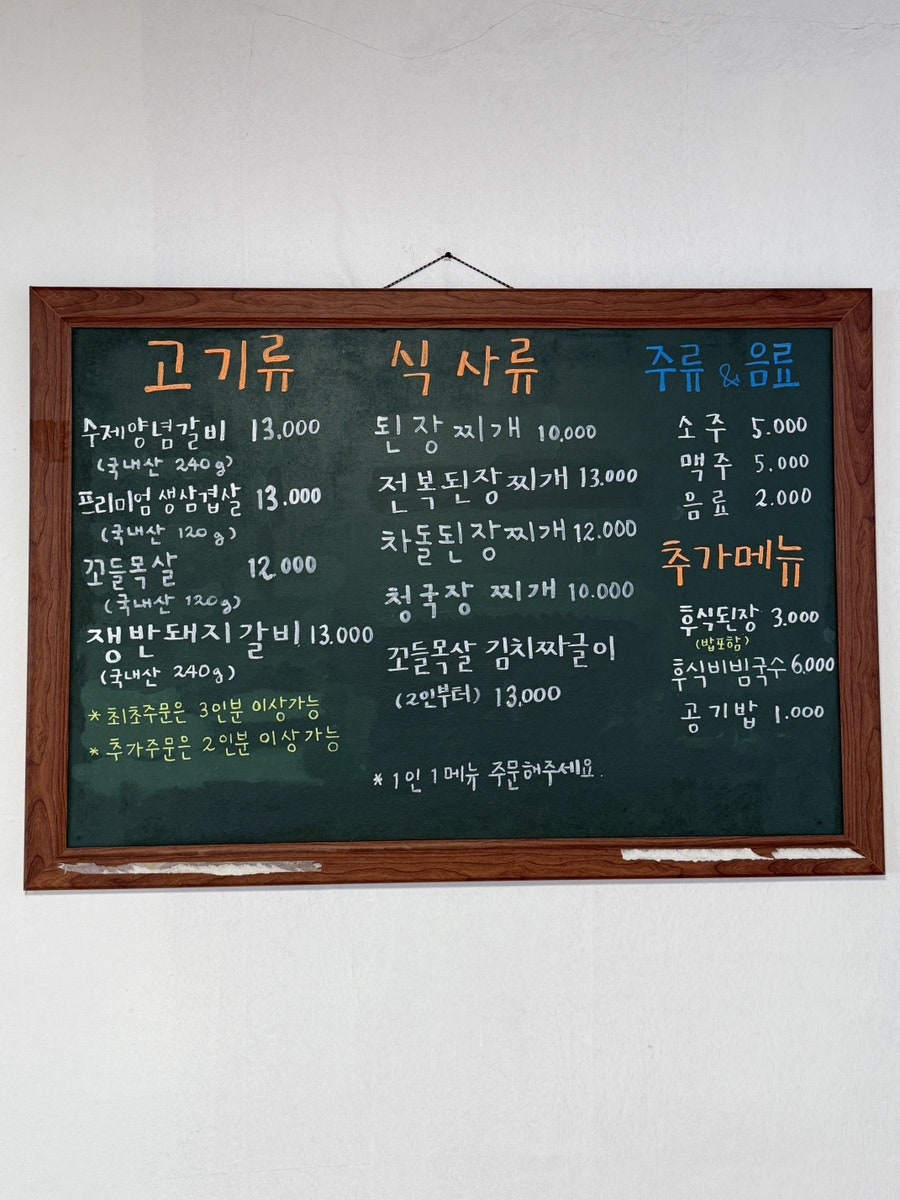 고기류
수제양념갈비 13.000
(국내산 240g)
프리미엄 생삼겹살 13.000
(국내산 120g)
꼬들목살 12.000
(국내산 120g)
쟁반돼지갈비 13.000
(국내산 240g)
* 최초주문은 3인분 이상가능
* 추가주문은 2인분 이상가능
식사류
된장찌개 10.000
전복된장찌개 13.000
차돌된장찌개 12.000
청국장 찌개 10.000
꼬들목살 김치짜글이
(2인부터) 13,000
* 1인 1메뉴 주문해주세요.
주류 & 음료
소주 5.000
맥주 5.000
음료 2.000
추가메뉴
후식된장 3.000
(밥포함)
후식비빔국수 6,000
공기밥 1.000